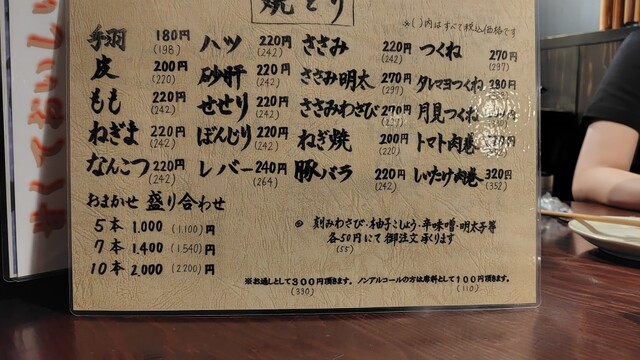 焼とり
※( )内はすべて税込価格です
手羽 180円 (198)
皮 200円 (220)
もも 220円 (242)
ねぎま 220円 (242)
なんこつ 220円 (242)
ハツ 220円 (242)
砂肝 220円 (242)
せせり 220円 (242)
ぼんじり 220円 (242)
レバー 240円 (264)
ささみ 220円 (242)
ささみ明太 270円 (297)
ささみわさび 270円 (297)
ねぎ焼 200円 (220)
豚バラ 220円 (242)
つくね 270円 (297)
タレマヨつくね 280円
月見つくね
トマト肉巻
しいたけ肉巻 320円 (352)
おまかせ 盛り合わせ
5本 1.000 (1.100)円
7本 1.400 (1.540)円
10本 2.000 (2200)円
◎ 刻みわさび・柚子こしょう・辛味噌・明太子等
各50円にて御注文承ります
(55)
※お通しとして300円頂きます。ノンアルコールの方は席料として100円頂ます。
(330) (110)